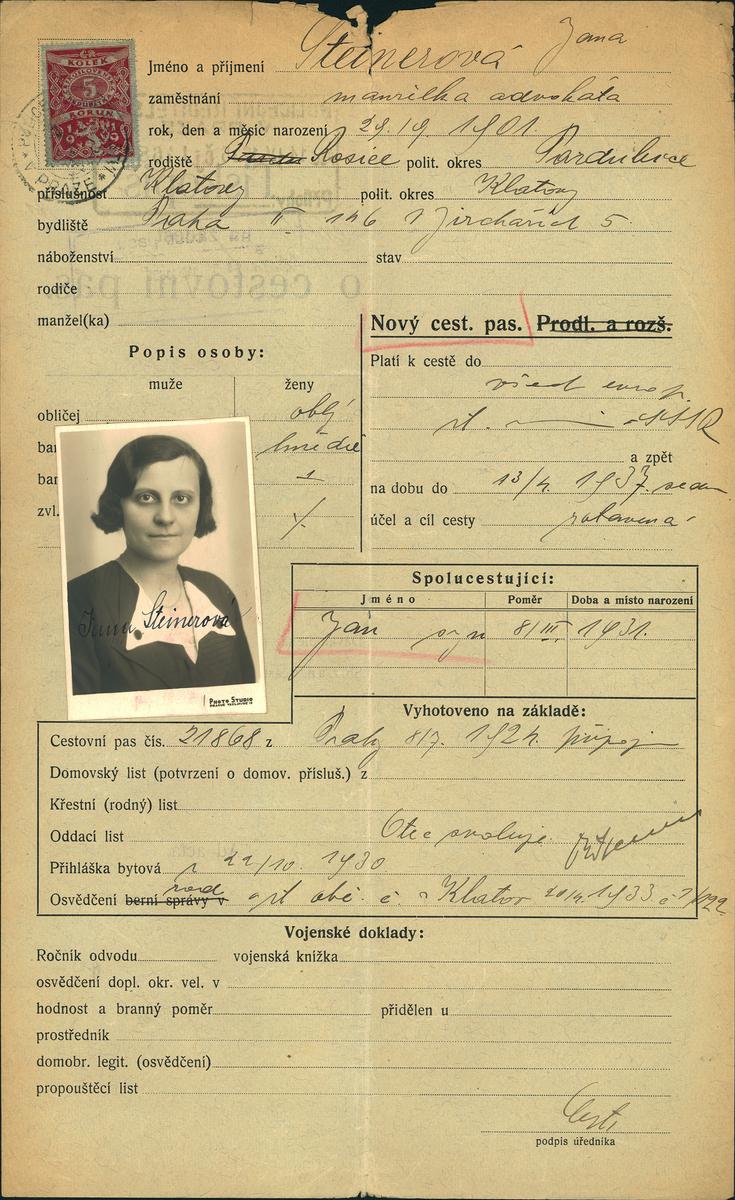 KOLEK
5
KORUN
Jméno a příjmení Steinerová Jana
zaměstnání manželka advokáta
rok, den a měsíc narození 29./9. 1901.
rodiště Rosice polit. okres Pardubice
příslušnost Klatovy polit. okres Klatovy
bydliště Praha II 146 V Jirchářích 5
náboženství stav
rodiče
o cestovní pas
manžel(ka)
Nový cest. pas. Prodl. a rozš.
Popis osoby:
muže ženy
obličej oblý
bar hnědé
bar
zvl.
Platí k cestě do
všech evrop.
st. SSSR
a zpět
na dobu do 13/4. 1937.
účel a cíl cesty zotavená
Jana Steinerová
PHOTO STUDIO
Spolucestující:
Jméno Poměr Doba a místo narození
Jan syn 8/III. 1931.
Vyhotoveno na základě:
Cestovní pas čís. 21868 z Prahy 8/7. 192
Domovský list (potvrzení o domov. přísluš.) z
Křestní (rodný) list
Oddací list Otec svoluje
Přihláška bytová z 22/10. 1930
Osvědčení berní správy v o st. obč. Klatov 1933 č.
Vojenské doklady:
Ročník odvodu vojenská knížka
osvědčení dopl. okr. vel. v
hodnost a branný poměr přidělen u
prostředník
domobr. legit. (osvědčení)
propouštěcí list
podpis úředníka